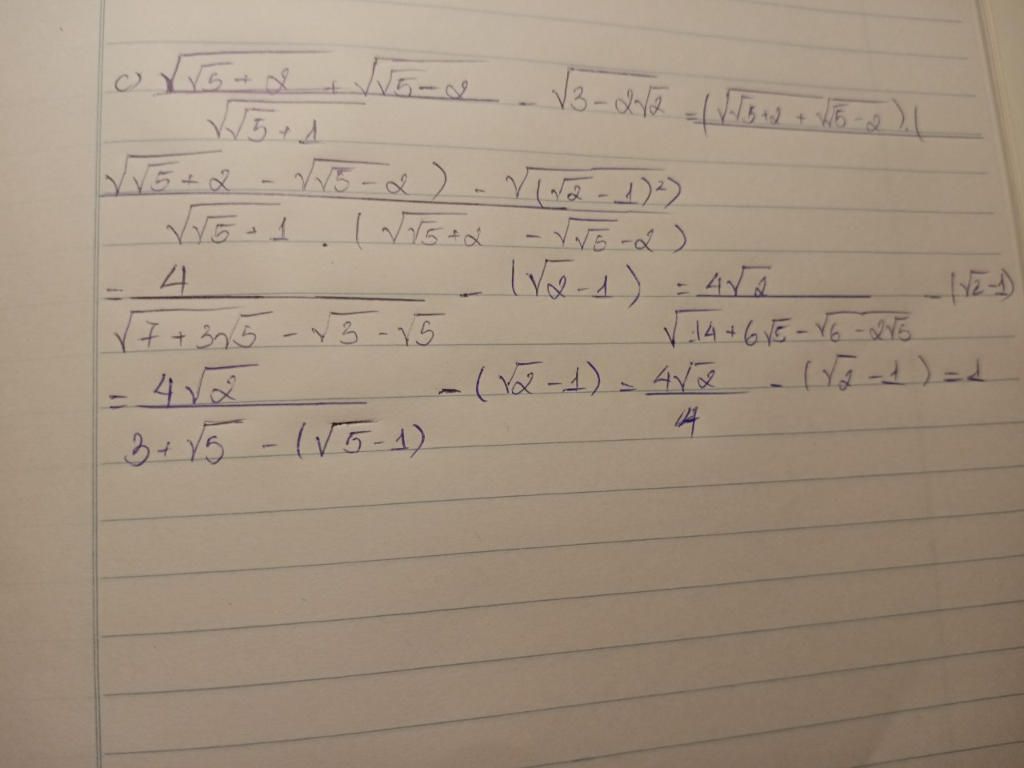 c) √(√5+2) + √(√5-2) / √(√5+1) - √(3-2√2) = (√(√5+2) + √(√5-2)).(
√(√5+2) - √(√5-2)) - √((√2-1)²)
√(√5+1) . (√(√5+2) - √(√5-2))
= 4 / √(7+3√5) - √3-√5 - (√2-1) = 4√2 / √(14+6√5) - √(6-2√5) - (√2-1)
= 4√2 / 3+√5-(√5-1) - (√2-1) = 4√2 / 4 - (√2-1) = 1